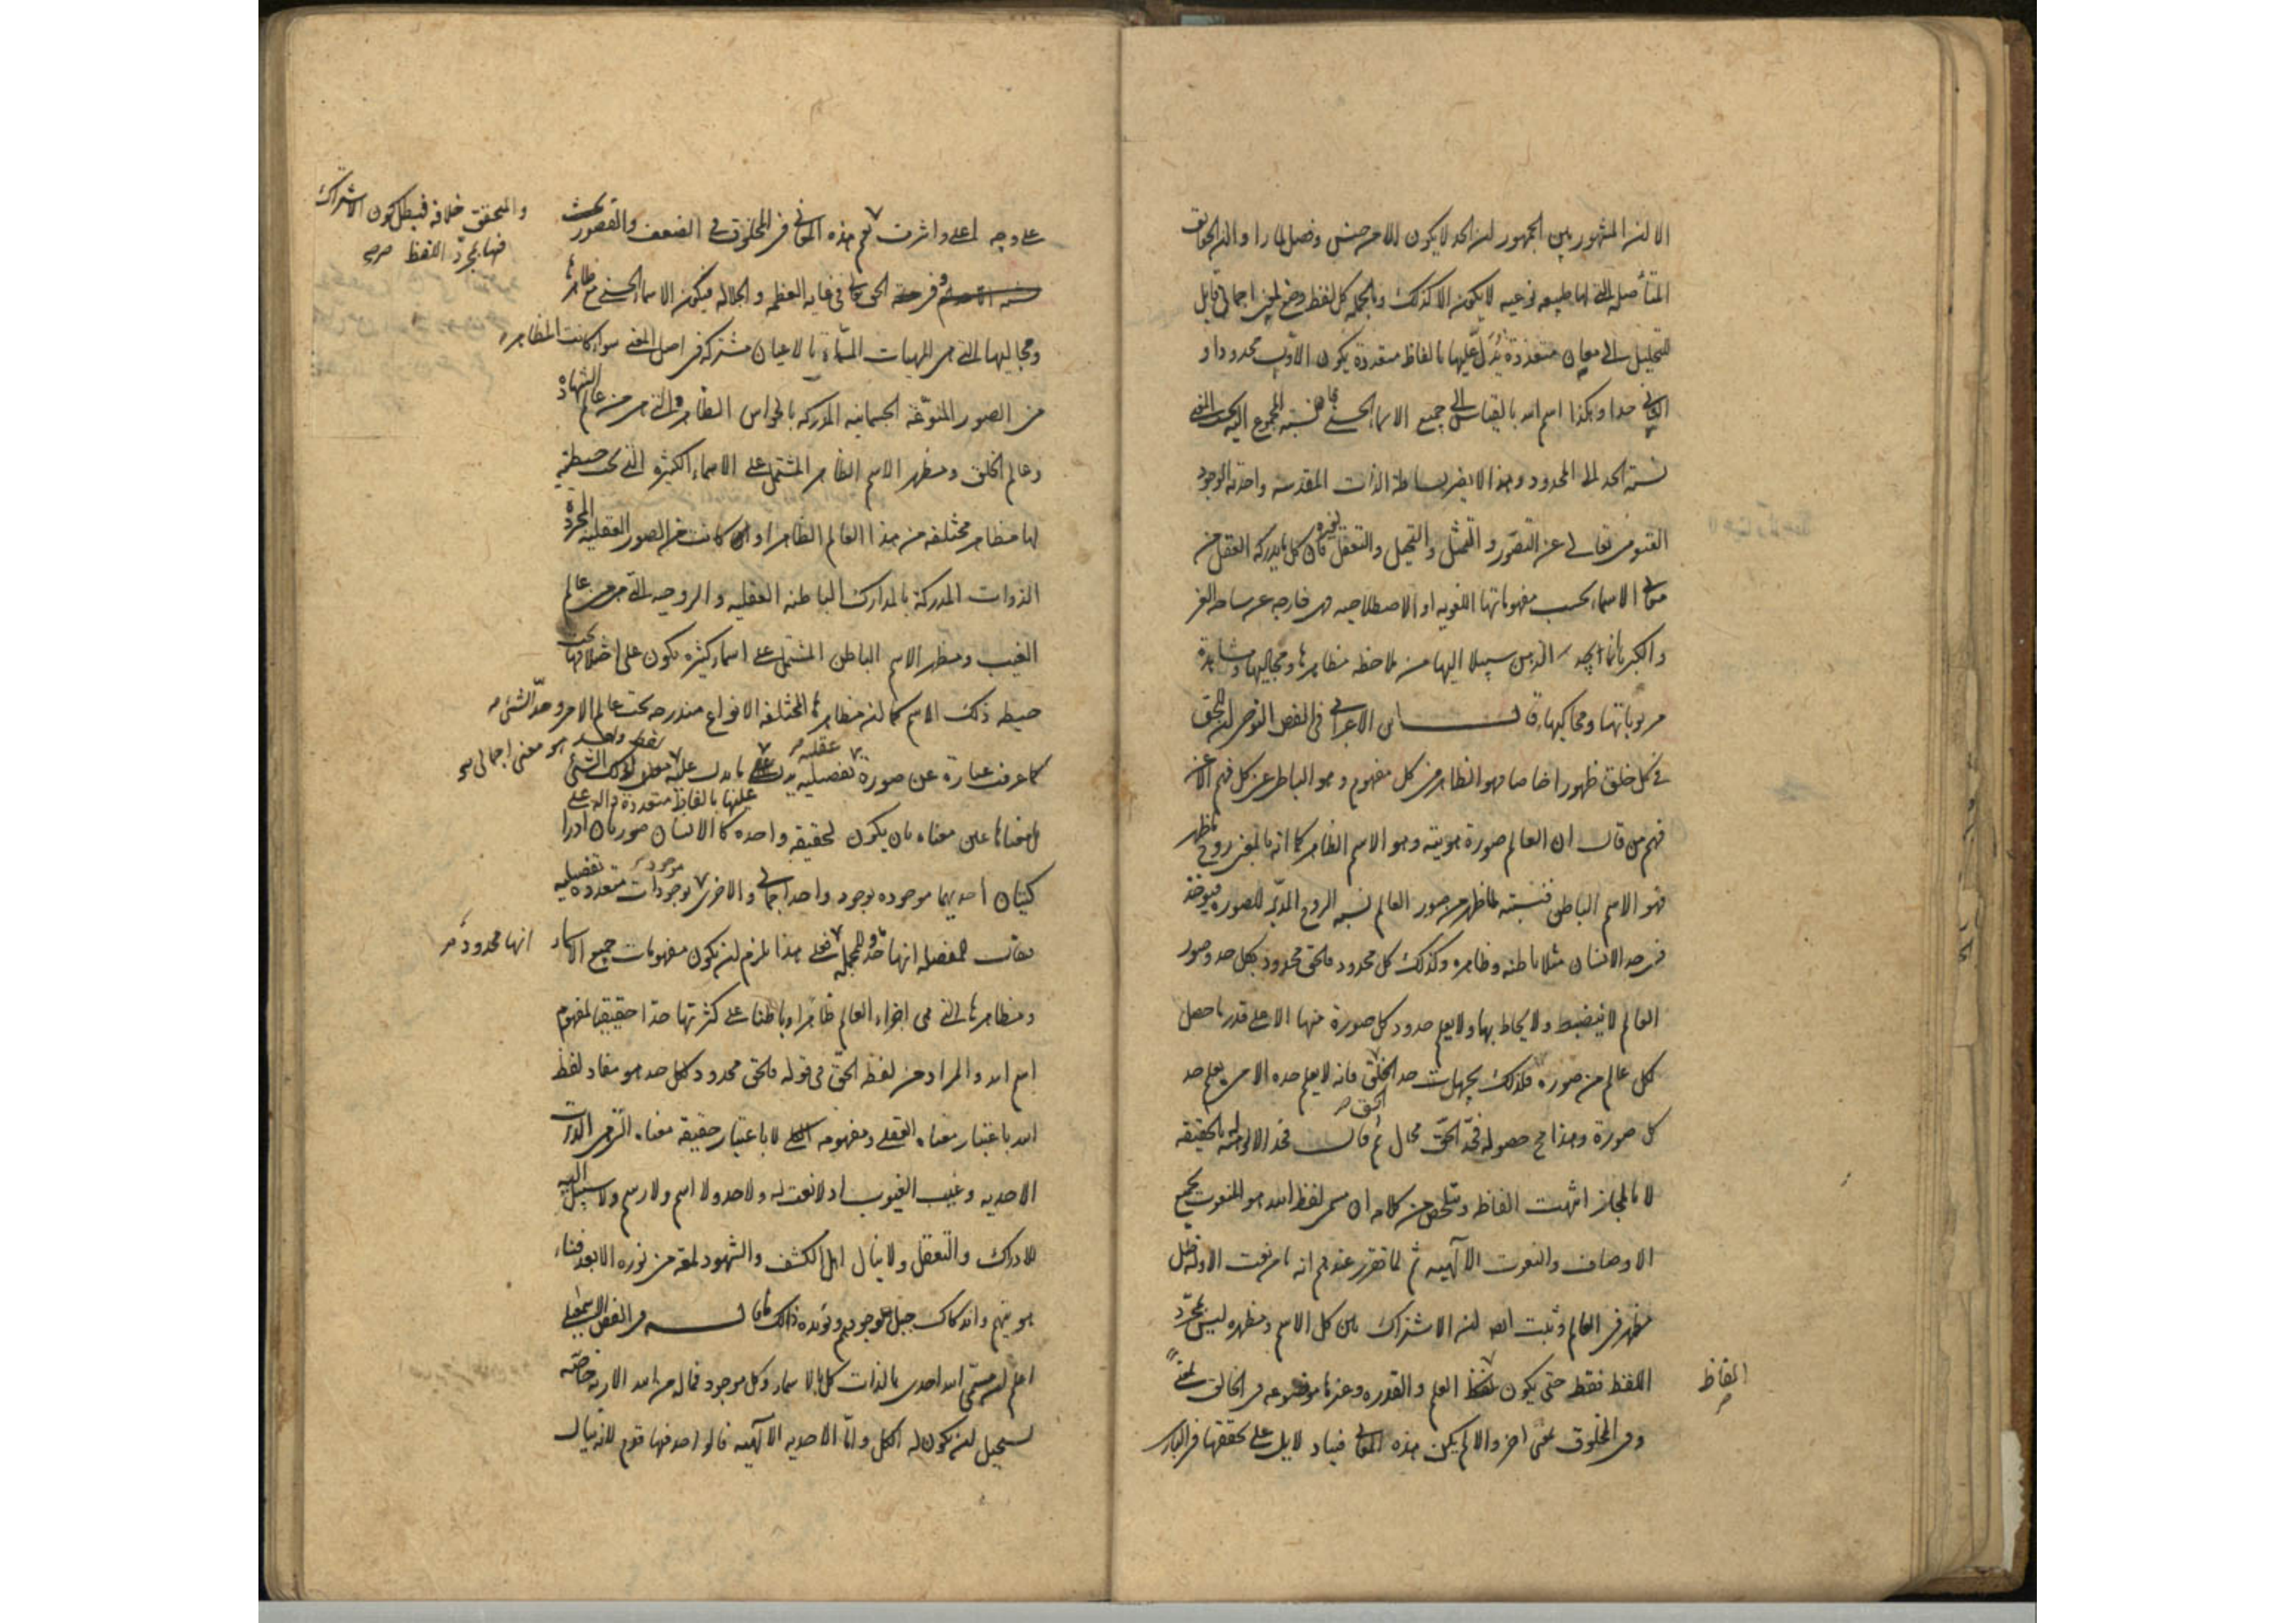 الا ان المشهور بين الجمهور ان الحد لا يكون الا من جنس وفصل لما راوا ان الحقايق
المتأصلة التي لها طبيعة نوعية لا يكون الا كذلك وبالجملة كل لفظ وضع لمعنى اجمالي قابل
للتحليل الى معان متعددة يُدَلّ عليها بالفاظ متعددة يكون الاول محدودا و
الثاني حدا وهكذا اسم الله بالقياس الى جميع الاسماء الحسنى فان نسبة المجموع اليه بحسب المعنى
نسبة الحد الى المحدود وهذا لا يضر بساطة الذات المقدسة واحدية الوجود
القيومي تعالى عن التصور والتمثل والتخيل والتعقل لغيره فان كل ما يدركه العقل من
معاني الاسماء بحسب مفهوماتها اللغوية او الاصطلاحية فهي خارجة عن ساحة العز
والكبرياء وانما يجد الذهن سبيلا اليها من ملاحظة مظاهرها ومجاليها ومشاهدة
مربوباتها ومحاكيها قال ابن الاعرابي في الفص النوحي ان للحق
في كل خلق ظهورا خاصا فهو الظاهر في كل مفهوم وهو الباطن عن كل فهم الا عن
فهم من قال ان العالم صورة هويته وهو الاسم الظاهر كما انه بالمعنى روح ما ظهر
فهو الاسم الباطن فنسبته لما ظهر من صور العالم نسبة الروح المدبر للصورة فيؤخذ
في حد الانسان مثلا باطنه وظاهره وكذلك كل محدود فالحق محدود بكل حد وصور
العالم لا تنضبط ولا يحاط بها ولا يعلم حدود كل صورة منها الا على قدر ما حصل
لكل عالم من صوره فلذلك يجهل حد الحق فانه لا يعلم حده الا من يعلم حد
كل صورة وهذا مح حصوله فحد الحق محال ثم قال فحد الالوهية له بالحقيقة
لا بالمجاز انتهت الفاظه وتلخص من كلامه ان مسمى لفظ الله هو المنعوت بجميع
الاوصاف والنعوت الالهية ثم لما تقرر عندهم انه ما من نعت الا وله ظل
مظهر في العالم وثبت ايضا ان الاشتراك بين كل الاسم ومظهره ليس بمجرد
اللفظ فقط حتى يكون لفظ العلم والقدرة وغيرها موضوعة في الخالق لمعنى
الفاظ
وفي المخلوق لمعنى اخر والا لم يكن هذه المعاني فينا دلايل على تحققها في الباري
على وجه اعلى واشرف نعم هذه المعاني في المخلوق في الضعف والقصور
والمتحقق خلافه فبطل كون الاشتراك
فيها بمجرد اللفظ صح
وفي الحق تعالى في غاية العظمة والجلالة فيكون الاسماء الحسنى مع مظاهرها
ومجاليها التي هي المهيات المسماة بالاعيان مشتركة في اصل المعنى سواء كانت المظاهر
من الصور المنوعة الجسمانية المدركة بالحواس الظاهرة التي هي من عالم الشهادة
وعالم الخلق ومظهر الاسم الظاهر المشتمل على الاسماء الكثيرة التي تحت حيطته
لها مظاهر مختلفة من هذا العالم الظاهر او كانت من الصور العقلية المجردة
الذوات المدركة بالمدارك الباطنة العقلية والروحية التي هي من عالم
الغيب ومظهر الاسم الباطن المشتمل على اسماء كثيرة يكون على اختلافها تحت
حيطة ذلك الاسم كما ان مظاهرها المختلفة الانواع مندرجة تحت عالم الامر وحد الشيء
كما عرفت عبارة عن صورة تفصيلية عقلية يدل عليها بالفاظ متعددة دالة على ما يدل عليه لفظ واحد هو معنى اجمالي
ما معناها عين معناه بان يكون لحقيقة واحدة كالانسان صورتان ادرا
كيتان احديهما موجودة بوجود واحد اجمالي والاخرى موجودة بوجودات متعددة تفصيلية
يقال للمفصلة انها حد وللمجملة انها محدود فعلى هذا يلزم ان يكون مفهومات جميع الاسماء
ومظاهرها التي هي اجزاء العالم ظاهرا وباطنا على كثرتها حدا حقيقيا لمفهوم
اسم الله والمراد من لفظ الحق في قوله فالحق محدود بكل حد هو مفاد لفظ
الله باعتبار معناه العقلي ومفهومه الكلي لا باعتبار حقيقة معناه التي هي الذات
الاحدية وغيب الغيوب اذ لا نعت له ولا حد ولا اسم ولا رسم ولا سبيل اليه
للادراك والتعقل ولا ينال اهل الكشف والشهود لمعة من نوره الا بعد فناء
هويتهم واندكاك جبل وجودهم ويؤيده ذلك ما قاله في الفص الاسمعيلي
اعلم ان مسمى الله احدي بالذات كل بالاسماء وكل موجود فماله من الله الا ربه خاصة
يستحيل ان يكون له الكل واما الاحدية الالهية فما لواحد فيها قدم لانه ينال